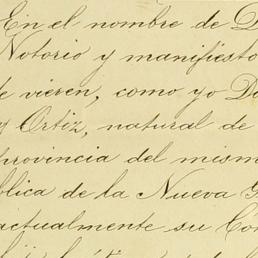 En el nombre de D
Notorio y manifiesto
le vieren, como yo Do
y Ortiz, natural de
provincia del mism
blica de la Nueva G
actualmente su Con